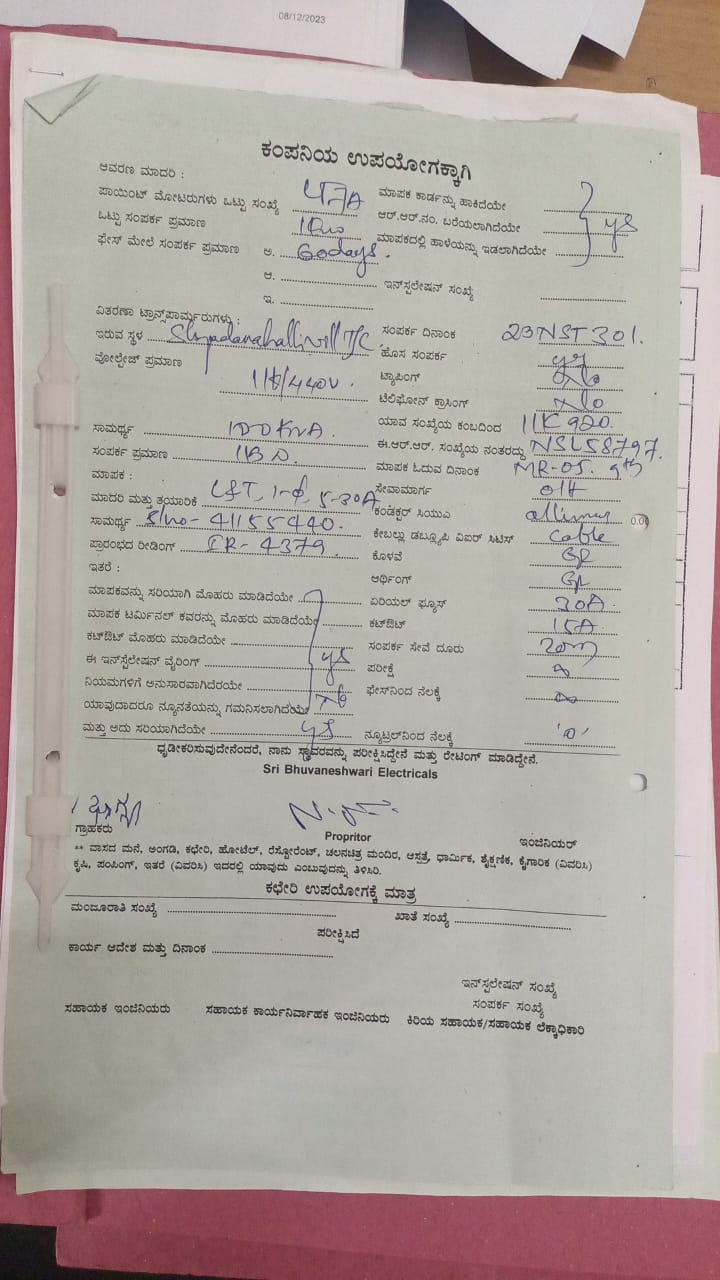 08/12/2023
ಕಂಪನಿಯ ಉಪಯೋಗಕ್ಕಾಗಿ
ಆವರಣ ಮಾದರಿ :
ಪಾಯಿಂಟ್ ಮೋಟರುಗಳು ಒಟ್ಟು ಸಂಖ್ಯೆ ಮಾಪಕ ಕಾರ್ಡನ್ನು ಹಾಕಿದೆಯೇ
ಒಟ್ಟು ಸಂಪರ್ಕ ಪ್ರಮಾಣ ಆರ್.ಆರ್.ನಂ. ಬರೆಯಲಾಗಿದೆಯೇ ys
ಫೇಸ್ ಮೇಲೆ ಸಂಪರ್ಕ ಪ್ರಮಾಣ ಅ. 60days. ಮಾಪಕದಲ್ಲಿ ಹಾಳೆಯನ್ನು ಇಡಲಾಗಿದೆಯೇ
ಆ. ಇನ್‌ಸ್ಪಲೇಷನ್ ಸಂಖ್ಯೆ
ಇ.
ವಿತರಣಾ ಟ್ರಾನ್ಸ್‌ಪಾರ್ಮ್ಮರುಗಳು : ಸಂಪರ್ಕ ದಿನಾಂಕ 23NST301.
ಇರುವ ಸ್ಥಳ T/C. ಹೊಸ ಸಂಪರ್ಕ ys
ವೋಲ್ಟೇಜ್ ಪ್ರಮಾಣ ಟ್ಯಾಪಿಂಗ್ No
ಟೆಲಿಫೋನ್ ಕ್ರಾಸಿಂಗ್ No
ಯಾವ ಸಂಖ್ಯೆಯ ಕಂಬದಿಂದ 11K920.
ಸಾಮರ್ಥ್ಯ 100KVA. ಈ.ಆರ್.ಆರ್. ಸಂಖ್ಯೆಯ ನಂತರದ್ದು NSL58797.
ಸಂಪರ್ಕ ಪ್ರಮಾಣ ಮಾಪಕ ಓದುವ ದಿನಾಂಕ MR-05. 9th
ಮಾಪಕ : ಸೇವಾಮಾರ್ಗ OH
ಮಾದರಿ ಮತ್ತು ತಯಾರಿಕೆ L&T, 1-ϕ, 5-30A ಕಂಡಕ್ಟರ್ ಸಿಯುಎ
ಸಾಮರ್ಥ್ಯ S/no- 41155440. ಕೇಬಲ್ಲು ಡಬ್ಲ್ಯೂಪಿ ವಿಐರ್ ಸಿಟಿಸ್ Cable
0.00
ಪ್ರಾರಂಭದ ರೀಡಿಂಗ್ IR- 4379. ಕೊಳವೆ
ಇತರೆ : ಆರ್ಥಿಂಗ್
ಮಾಪಕವನ್ನು ಸರಿಯಾಗಿ ಮೊಹರು ಮಾಡಿದೆಯೇ ಏರಿಯಲ್ ಫ್ಯೂಸ್ 30A.
ಮಾಪಕ ಟರ್ಮಿನಲ್ ಕವರನ್ನು ಮೊಹರು ಮಾಡಿದೆಯೇ ಕಟ್‌ಔಟ್ 15A
ಕಟ್‌ಔಟ್ ಮೊಹರು ಮಾಡಿದೆಯೇ ಸಂಪರ್ಕ ಸೇವೆ ದೂರು 20m
ಈ ಇನ್‌ಸ್ಪೆಲೇಷನ್ ವೈರಿಂಗ್ ys ಪರೀಕ್ಷೆ ∞
ನಿಯಮಗಳಿಗೆ ಅನುಸಾರವಾಗಿದೆರಯೇ ಫೇಸ್‌ನಿಂದ ನೆಲಕ್ಕೆ ∞
ಯಾವುದಾದರೂ ನ್ಯೂನತೆಯನ್ನು ಗಮನಿಸಲಾಗಿದೆಯೇ No
ಮತ್ತು ಅದು ಸರಿಯಾಗಿದೆಯೇ ys ನ್ಯೂಟ್ರಲ್‌ನಿಂದ ನೆಲಕ್ಕೆ '0'
ಧೃಡೀಕರಿಸುವುದೇನೆಂದರೆ, ನಾನು ಸ್ಥಾವರವನ್ನು ಪರೀಕ್ಷಿಸಿದ್ದೇನೆ ಮತ್ತು ರೇಟಿಂಗ್ ಮಾಡಿದ್ದೇನೆ.
Sri Bhuvaneshwari Electricals
ಗ್ರಾಹಕರು Propritor ಇಂಜಿನಿಯರ್
** ವಾಸದ ಮನೆ, ಅಂಗಡಿ, ಕಛೇರಿ, ಹೋಟೆಲ್, ರೆಸ್ಟೋರೆಂಟ್, ಚಲನಚಿತ್ರ ಮಂದಿರ, ಆಸ್ಪತ್ರೆ, ಧಾರ್ಮಿಕ, ಶೈಕ್ಷಣಿಕ, ಕೈಗಾರಿಕ (ವಿವರಿಸಿ)
ಕೃಷಿ, ಪಂಪಿಂಗ್, ಇತರೆ (ವಿವರಿಸಿ) ಇದರಲ್ಲಿ ಯಾವುದು ಎಂಬುವುದನ್ನು ತಿಳಿಸಿರಿ.
ಕಛೇರಿ ಉಪಯೋಗಕ್ಕೆ ಮಾತ್ರ
ಮಂಜೂರಾತಿ ಸಂಖ್ಯೆ ಖಾತೆ ಸಂಖ್ಯೆ
ಪರೀಕ್ಷಿಸಿದೆ
ಕಾರ್ಯ ಆದೇಶ ಮತ್ತು ದಿನಾಂಕ
ಇನ್‌ಸ್ಪಲೇಷನ್ ಸಂಖ್ಯೆ
ಸಂಪರ್ಕ ಸಂಖ್ಯೆ
ಸಹಾಯಕ ಇಂಜಿನಿಯರು ಸಹಾಯಕ ಕಾರ್ಯನಿರ್ವಾಹಕ ಇಂಜಿನಿಯರು ಕಿರಿಯ ಸಹಾಯಕ/ಸಹಾಯಕ ಲೆಕ್ಕಾಧಿಕಾರಿ